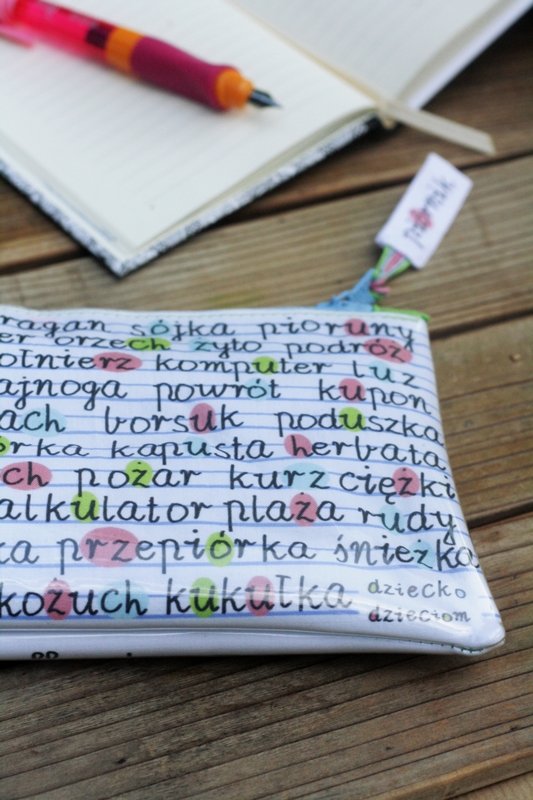 piórnik
ragan sójka pioruny
er orzech żyto podróż
ołnierz komputer luz
ajnoga powrót kupon
ach borsuk poduszka
órka kapusta herbata
ch pożar kurz ciężki
alkulator plaża rudy
ka przepiórka śnieżka
kożuch kukułka dziecko
dzieciom